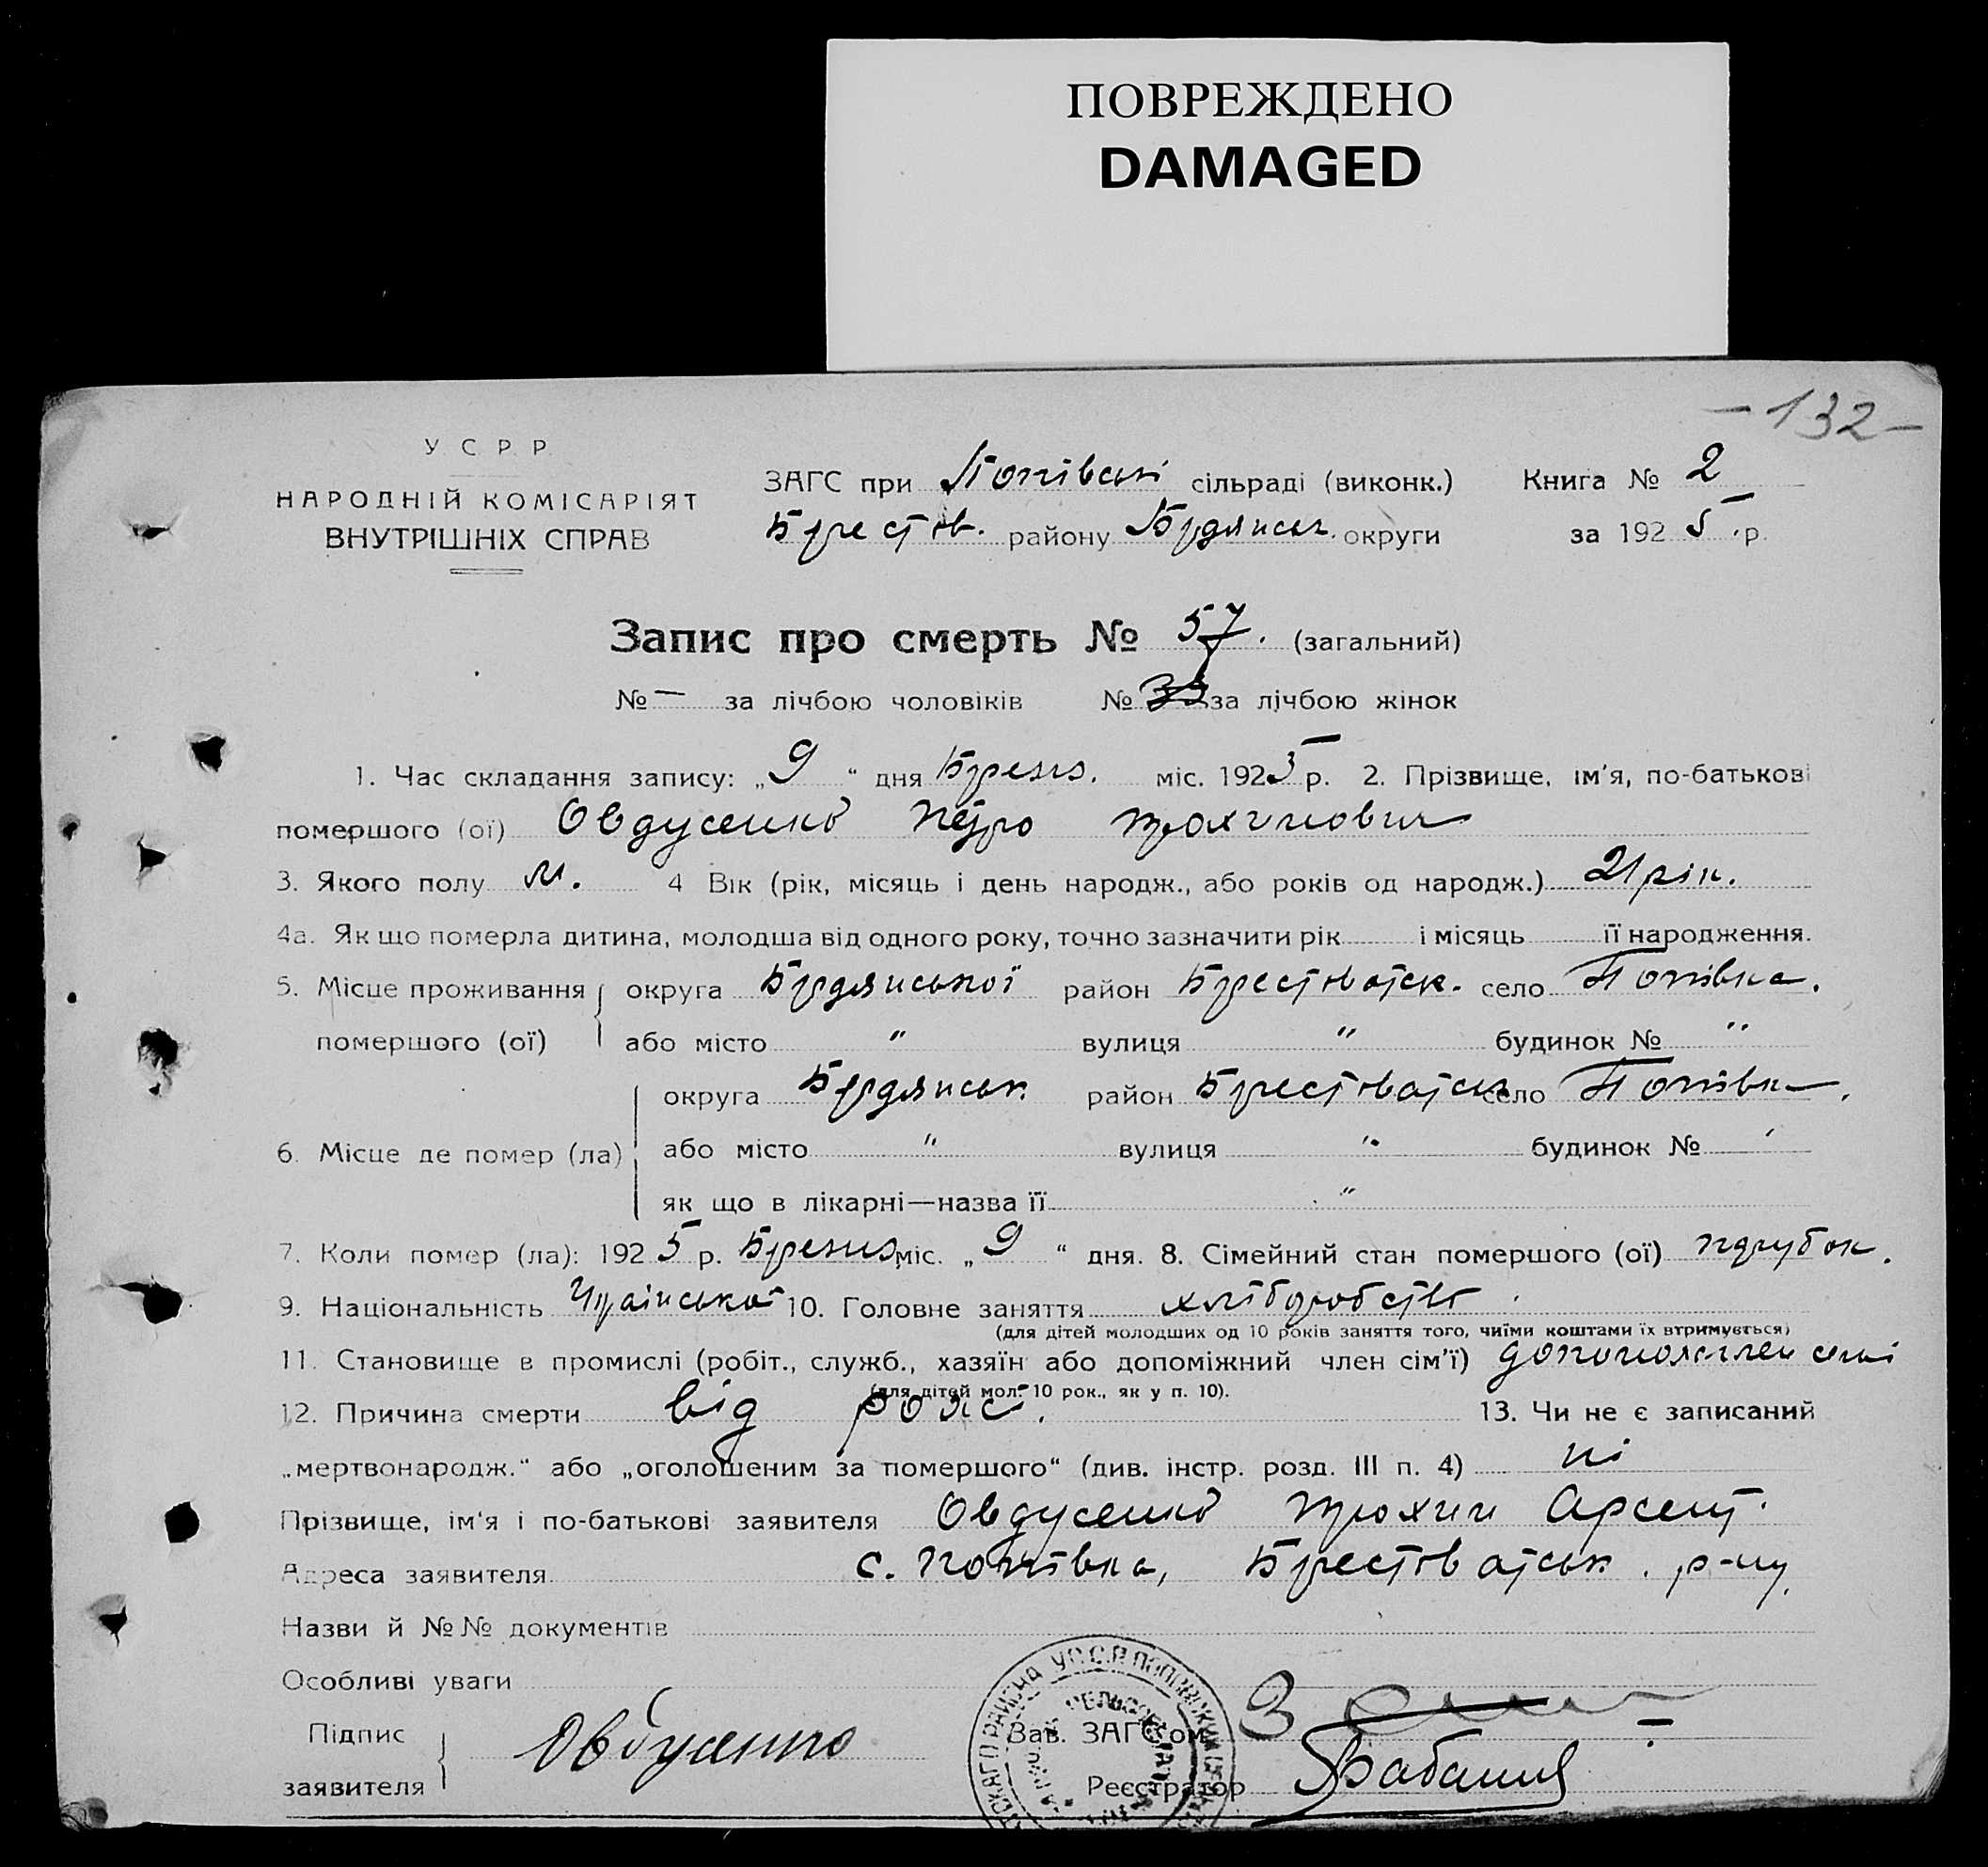 ПОВРЕЖДЕНО
DAMAGED
-132-
У С Р Р
НАРОДНІЙ КОМІСАРІЯТ
ВНУТРІШНІХ СПРАВ
ЗАГС при Попівські сільраді (виконк.) Книга № 2
Брестов. району Бердянськ. округи за 1925 р.
Запис про смерть № 57. (загальний)
№ — за лічбою чоловіків № 33 за лічбою жінок
1. Час складання запису: „9“ дня Березн. міс. 1925 р. 2. Прізвище, ім'я, по-батькові
помершого (ої) Овдусенко Петро Трохимович
3. Якого полу м. 4 Вік (рік, місяць і день народж., або років од народж.) 21 рік.
4а. Як що померла дитина, молодша від одного року, точно зазначити рік і місяць її народження.
5. Місце проживання округа Бердянської район Брестоватск. село Попівка.
помершого (ої) або місто " вулиця " будинок № "
округа Бердянськ район Брестоватськ село Попівка.
6. Місце де помер (ла) або місто " вулиця " будинок № '
як що в лікарні—назва її "
7. Коли помер (ла): 1925 р. Березня міс. „9“ дня. 8. Сімейний стан помершого (ої) парубок.
9. Національність Українська 10. Головне заняття хліборобств.
(для дітей молодших од 10 років заняття того, чиїми коштами їх втримується)
11. Становище в промислі (робіт., служб., хазяїн або допоміжний член сім'ї) допомож. член семї
(для дітей мол. 10 рок., як у п. 10).
12. Причина смерти від рожі. 13. Чи не є записаний
„мертвонародж.“ або „оголошеним за помершого“ (див. інстр. розд. III п. 4) ні
Прізвище, ім'я і по-батькові заявителя Овдусенко Трохим Арсент.
Адреса заявителя с. Попівка, Брестоватськ. р-ну
Назви й №№ документів
Особливі уваги
Підпис
заявителя Овдусенко
Зав. ЗАГС'ом
Реєстратор